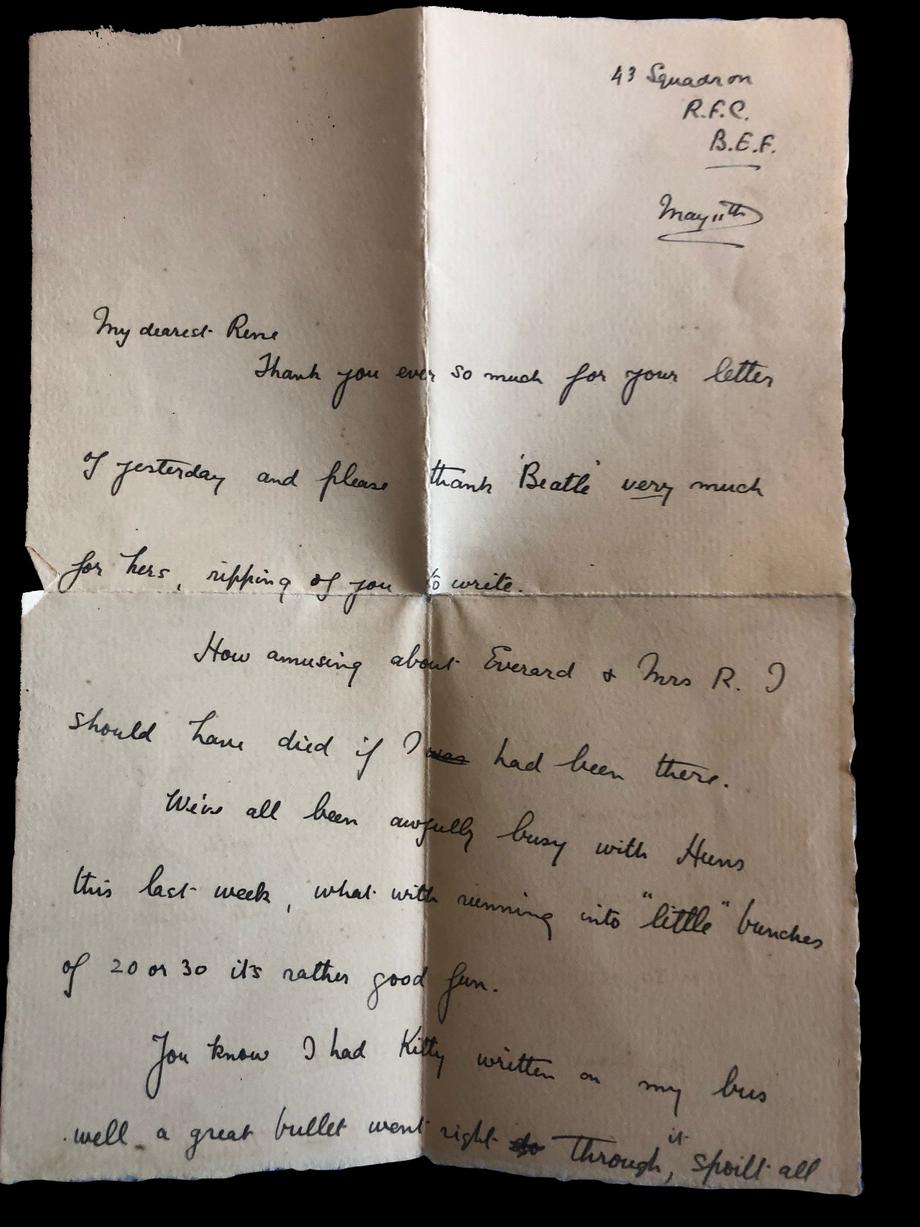 43 Squadron
R.F.C.
B.E.F.
May 11th
My dearest Rene
Thank you ever so much for your letter
of yesterday and please thank 'Beatle' very much
for hers, ripping of you to write.
How amusing about Everard & Mrs R. I
should have died if I was had been there.
We've all been awfully busy with Huns
this last week, what with running into "little" bunches
of 20 or 30 it's rather good fun.
You know I had Kitty written on my bus
well a great bullet went right through it, spoilt all